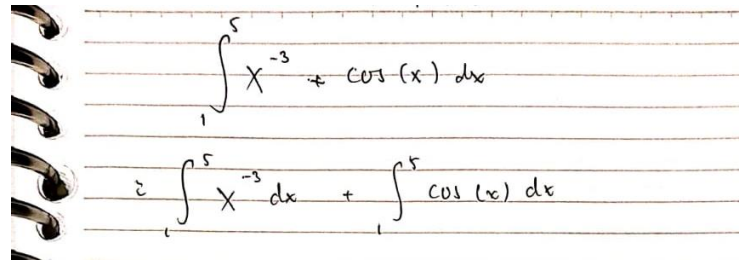 ∫₁⁵ x⁻³ + cos (x) dx
= ∫₁⁵ x⁻³ dx + ∫₁⁵ cos (x) dx